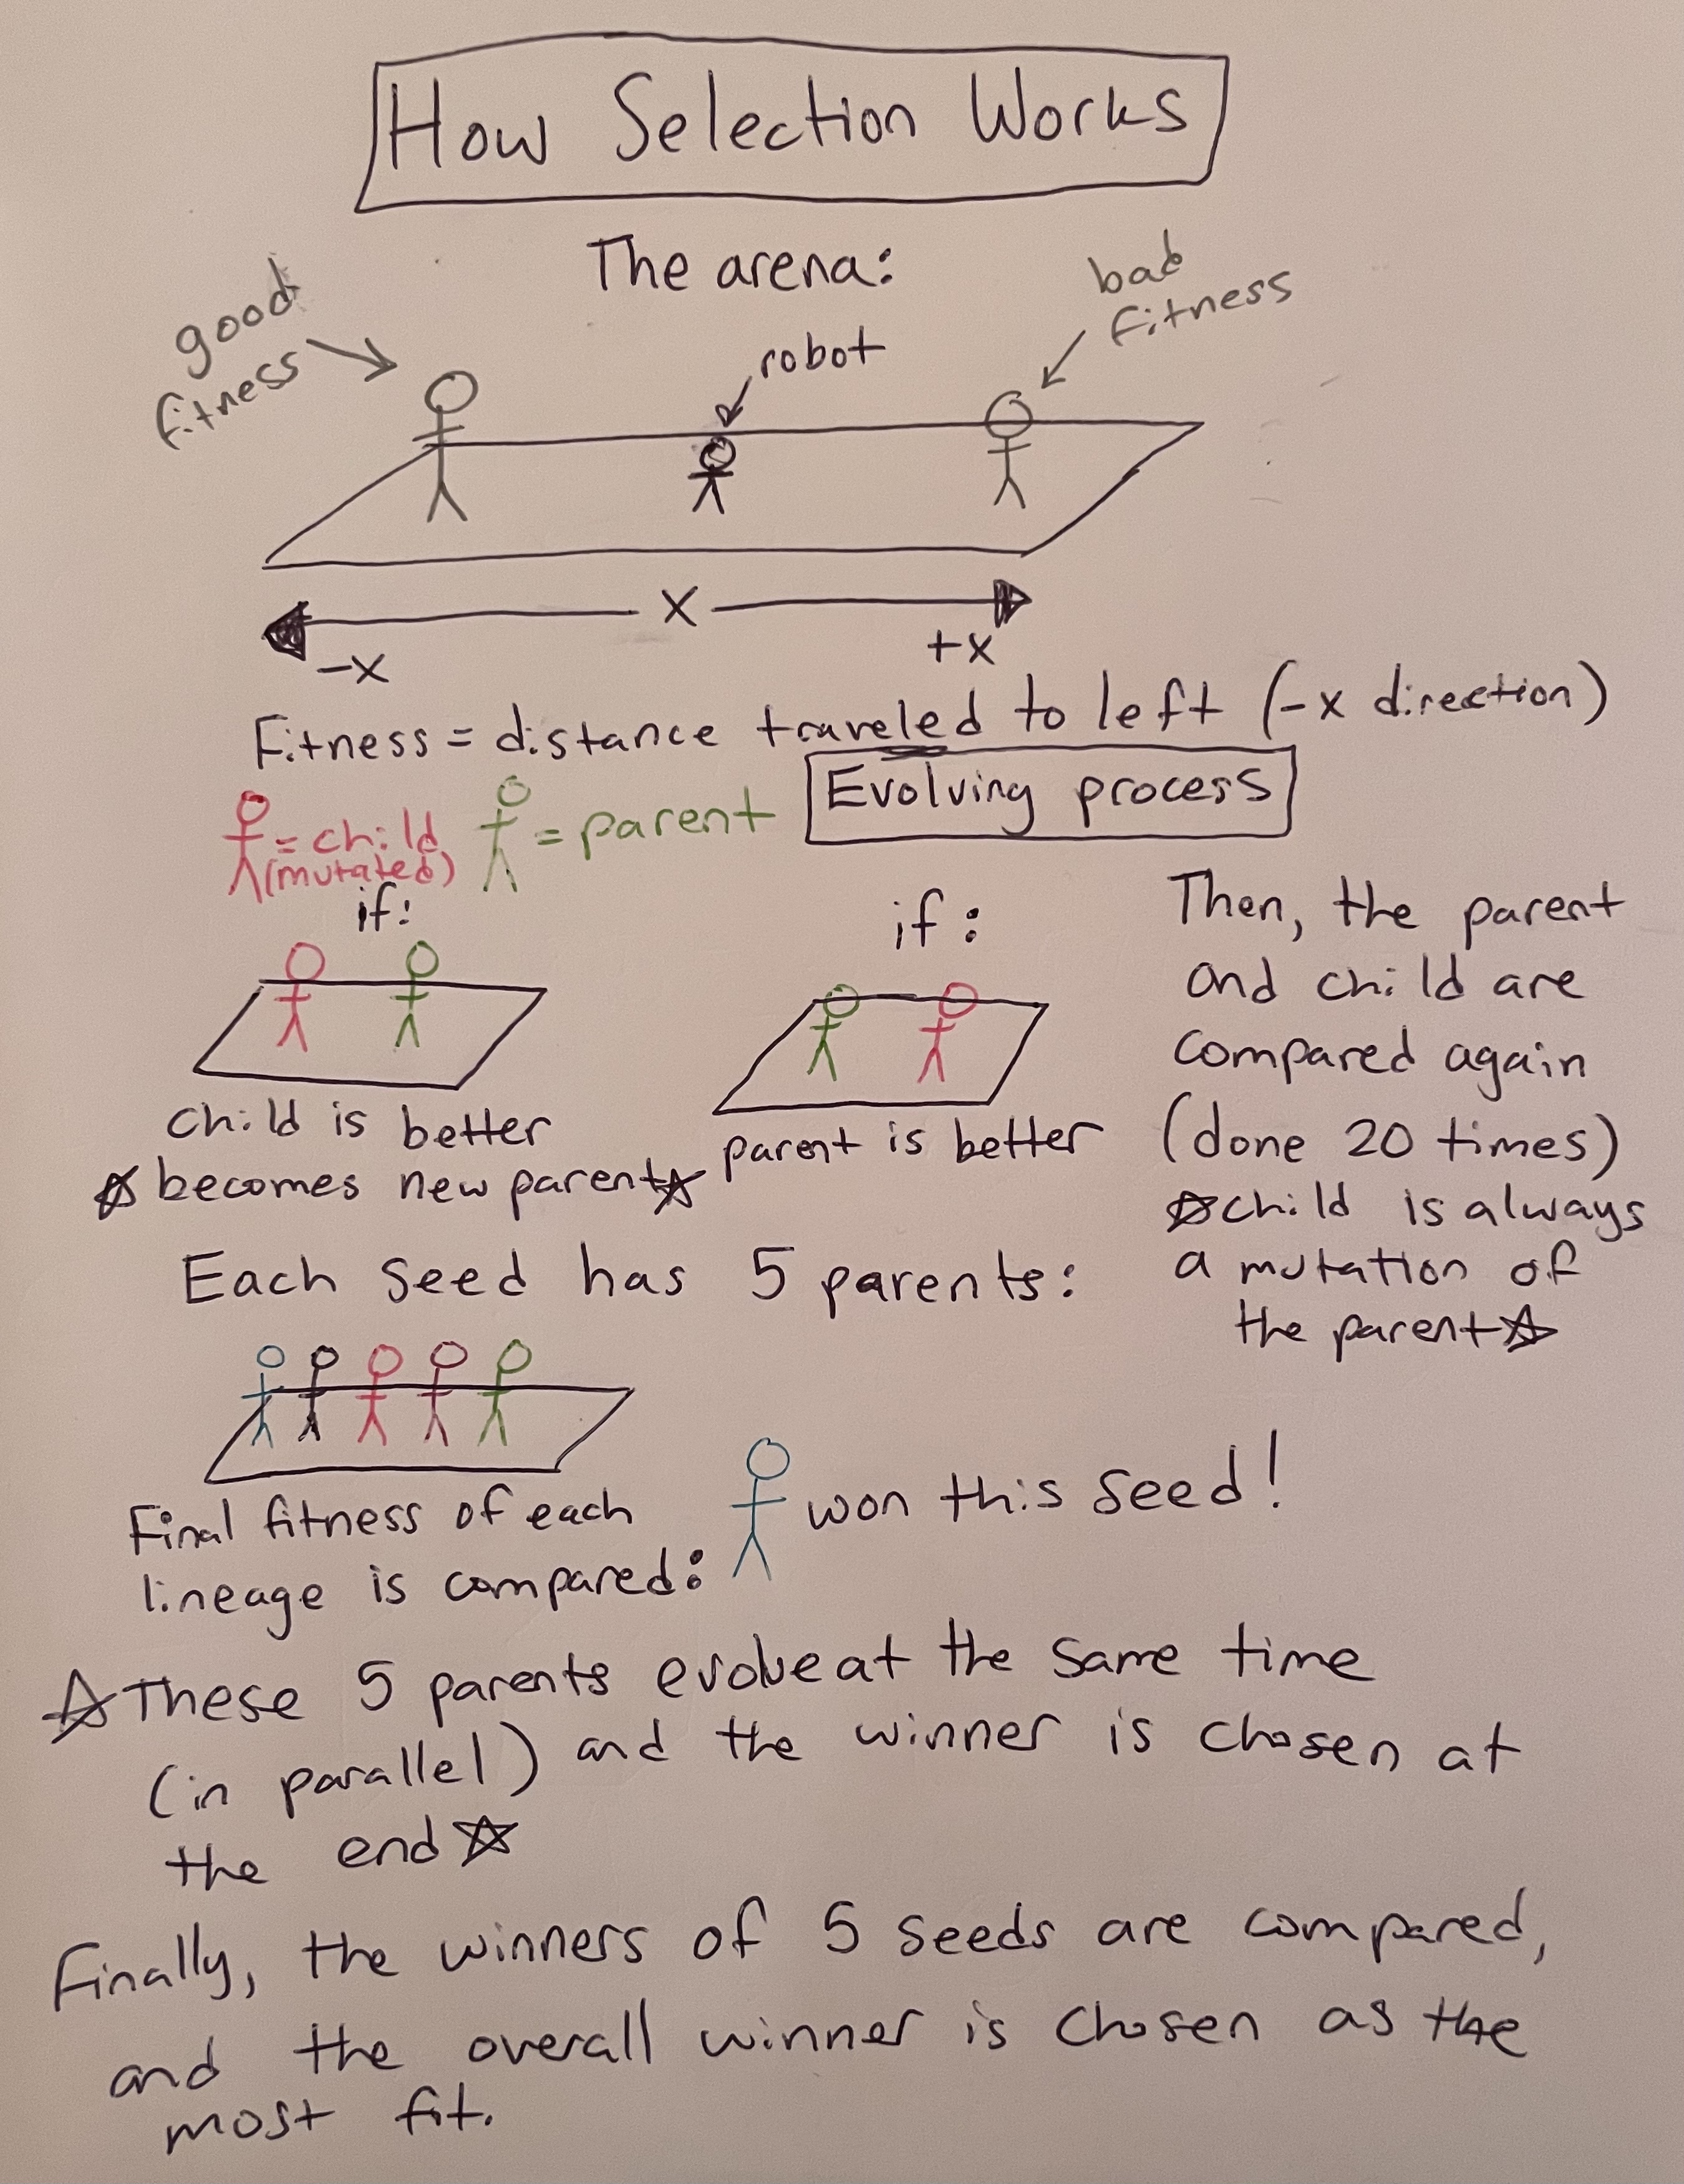 How Selection Works
The arena:
good
fitness
bad
fitness
robot
X
-x
+x
Fitness = distance traveled to left (-x direction)
= child
(mutated)
= parent
Evolving process
if:
child is better
☆ becomes new parent☆
if:
parent is better
Then, the parent
and child are
compared again
(done 20 times)
☆child is always
a mutation of
the parent☆
Each seed has 5 parents:
Final fitness of each
lineage is compared:
won this seed!
☆These 5 parents evolve at the same time
(in parallel) and the winner is chosen at
the end☆
Finally, the winners of 5 seeds are compared,
and the overall winner is chosen as the
most fit.